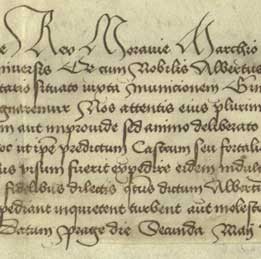 e Rex Moravie Marchio
niversis Et cum Nobilis Albertus
tario situato iuxta municionem Gin
gnaremur Nos attentis eius plurim
m aut improvide sed animo deliberato
oc ut ipe predictum Castrum seu fortali
us visum fuerit expedire eidem indul
fidelibus dilectis qtus dictum Albertu
pediant inquietent turbent aut moleste
Datum Prage die Secunda Maij